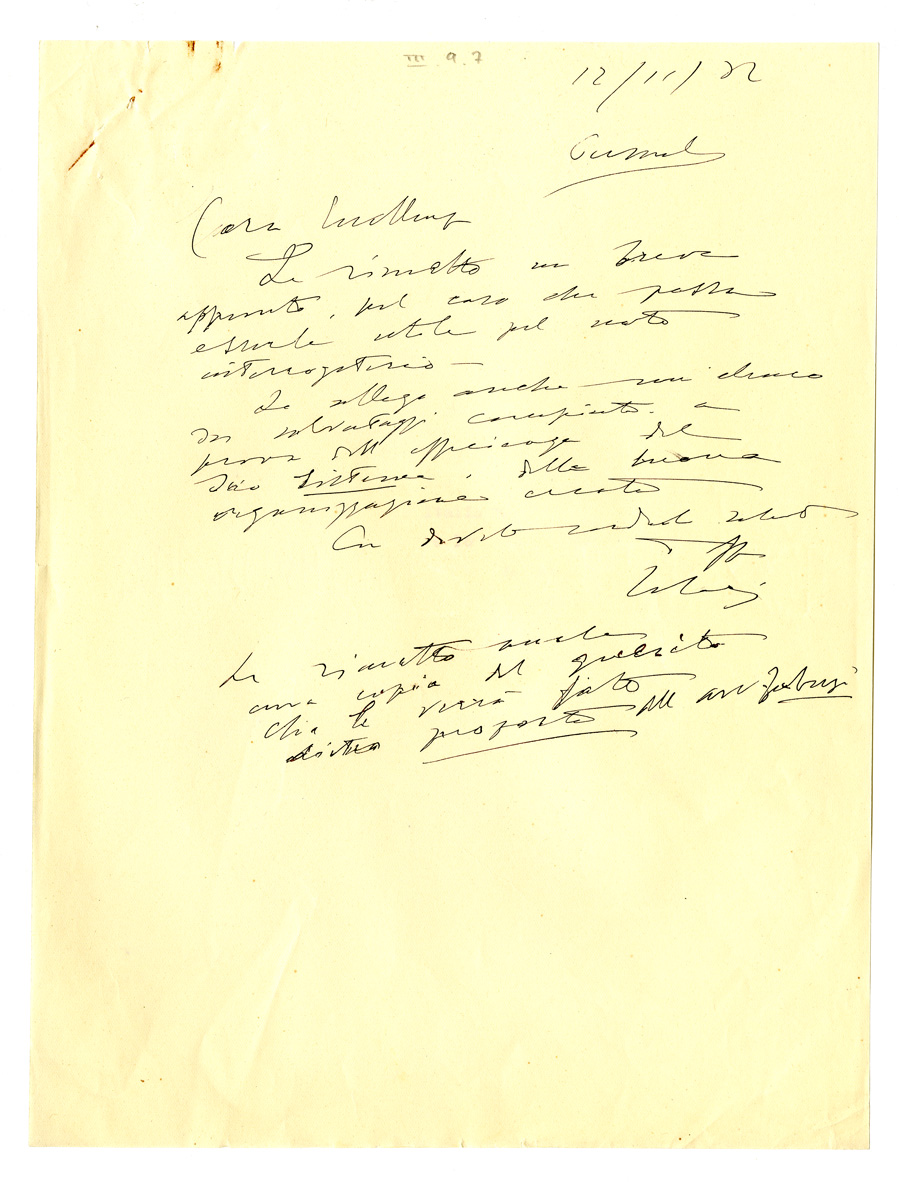 III 9.7
12/11/32
Personale
Caro
Le rimetto un breve
appunto, pel caso che possa
esserle utile pel noto
interrogatorio —
Le allego anche un elenco
dei salvataggi compiuti a
prova dell'efficienza del
Suo sistema e della buona
organizzazione creata
Con devoti cordiali saluti
Le rimetto anche
una copia del quesito
che le verrà fatto
dietro proposta dell'avv